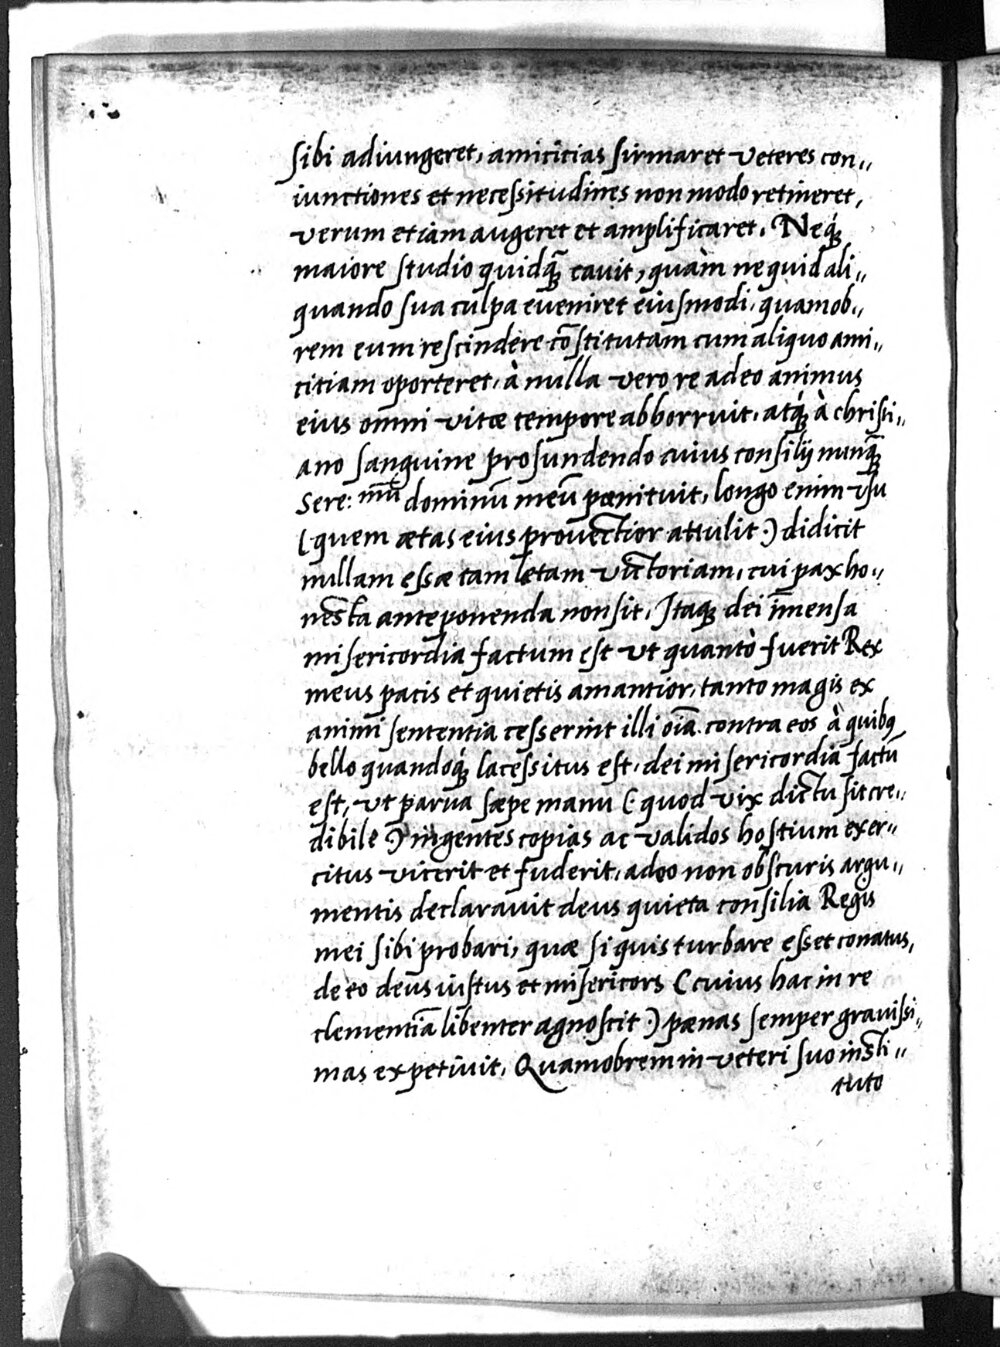 sibi adiungeret, amicitias firmaret veteres con„
iunctiones et necessitudines non modo retineret,
verum etiàm augeret et amplificaret. Neq́;
maiore studio quidq̃; cavit, quàm ne quid ali„
quando sua culpa eveniret eiusmodi, quamob„
rem eum rescindere cõstitutam cum aliquo ami„
citiam oporteret, à nulla vero re adeo animus
eius omni vitæ tempore abhorruit, atq́; à christi„
ano sanguine profundendo cuius consilij nunq̃;
Sere: mũ dominũ meũ pænituit, longo enim usu
(quem ætas eius provectior attulit:) didicit
nullam essæ tam letam victoriam, cui pax ho„
nesta anteponenda non sit, Itaq; dei im̃ensa
misericordia factum est ut quantò fuerit Rex
meus pacis et quietis amantior, tanto magis ex
animi sententia cesserint illi oĩa contra eos à quibq
bello quandoq́; lacessitus est, dei misericordia factũ
est, ut parua sæpe manu (: quod vix dictu sit cre„
dibile :) ingentes copias ac validos hostium exer„
citus vicerit et fuderit, adeo non obscuris argu„
mentis declaravit deus quieta consilia Regis
mei sibi probari, quæ si quis turbare esset conatus,
de eo deus iustus et misericors (cuius hac in re
clementiã libenter agnoscit:) pænas semper gravissi„
mas expetivit, Quamobrem in veteri suo insti„
tuto